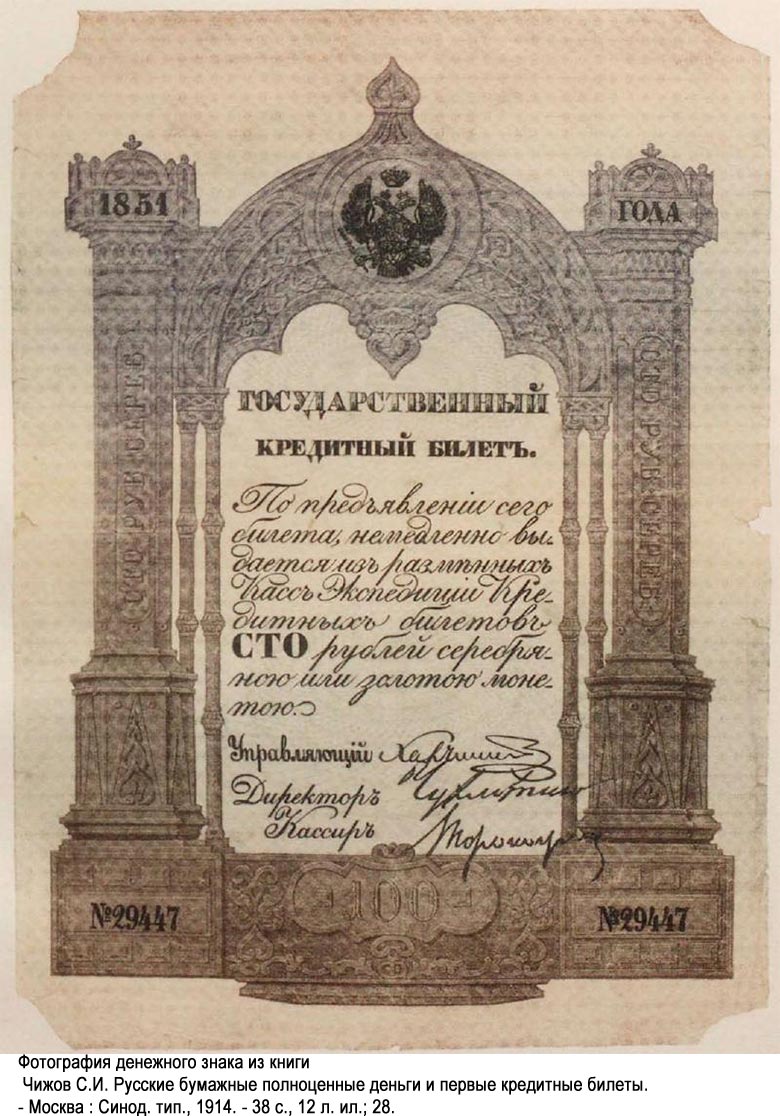 1851
ГОДА
СТО РУБ. СЕРЕБ.
СТО РУБ. СЕРЕБ.
ГОСУДАРСТВЕННЫЙ
КРЕДИТНЫЙ БИЛЕТЪ.
По предъявленіи сего
билета, немедленно вы-
дается изъ размѣнныхъ
Кассъ Экспедиціи Кре-
дитныхъ билетовъ
СТО рублей серебря-
ною или золотою моне-
тою.
Управляющій
Директоръ
Кассиръ
100
№29447
№29447
Фотография денежного знака из книги
Чижов С.И. Русские бумажные полноценные деньги и первые кредитные билеты.
- Москва : Синод. тип., 1914. - 38 с., 12 л. ил.; 28.